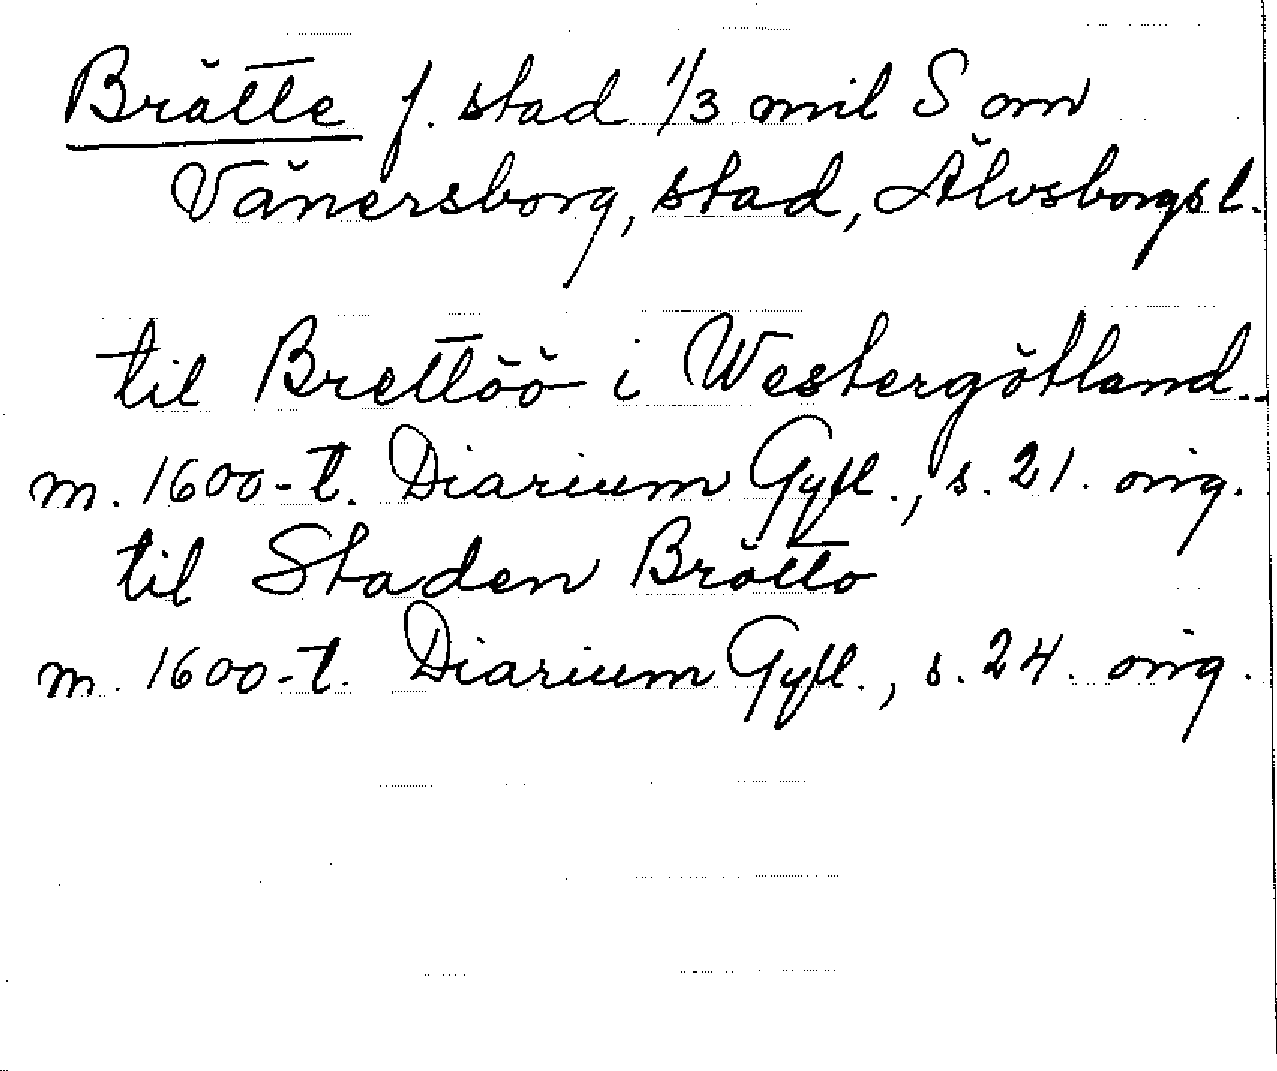 Brätte f. stad 1/3 mil S om
Vänersborg, stad, Älvsborgs l.
til Brettöö i Westergötland..
m. 1600-t. Diarium Gyll., s. 21. orig.
til Staden Brötto
m. 1600-t. Diarium Gyll., s. 24. orig.